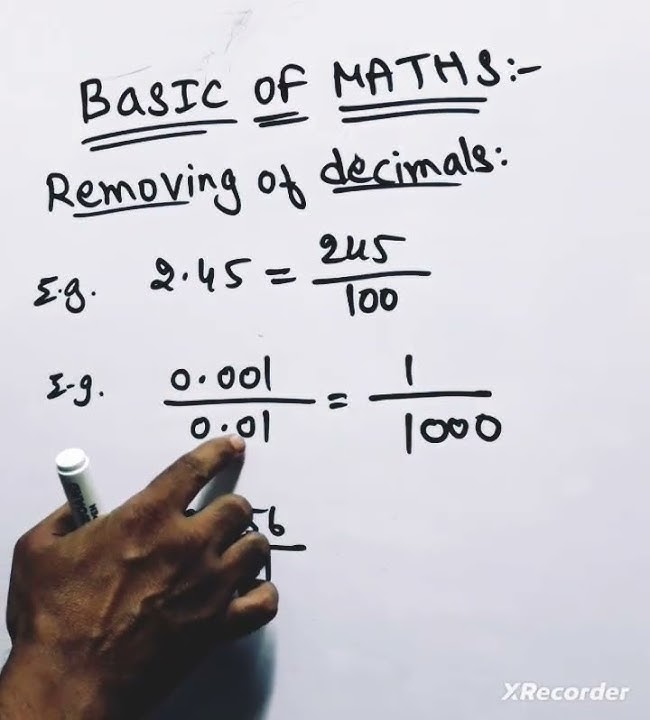 BASIC OF MATHS:-
Removing of decimals:
E.g. 2.45 = 245/100
E-g. 0.001/0.01 = 1/1000
56
XRecorder